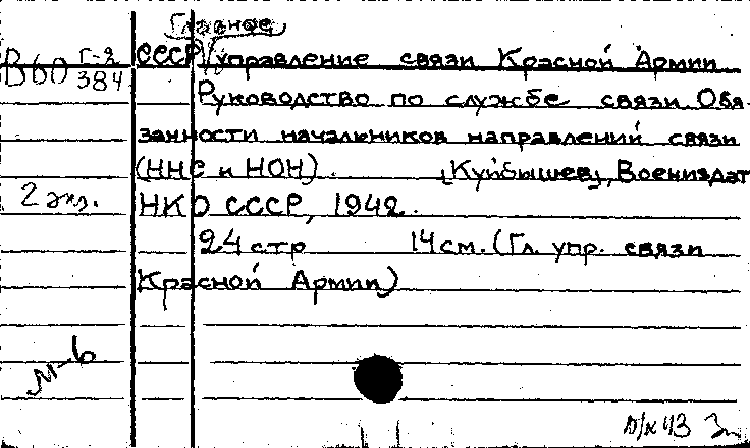 Главное
Г-2 СССР управление связи Красной Армии
D60 384
Руководство по службе связи Обя-
занности начальников направлений связи
(ННС и НОН). [Куйбышев], Воениздат
2 экз. НКО СССР, 1942.
24 стр 14 см. (Гл. упр. связи
Красной Армии)
м-6